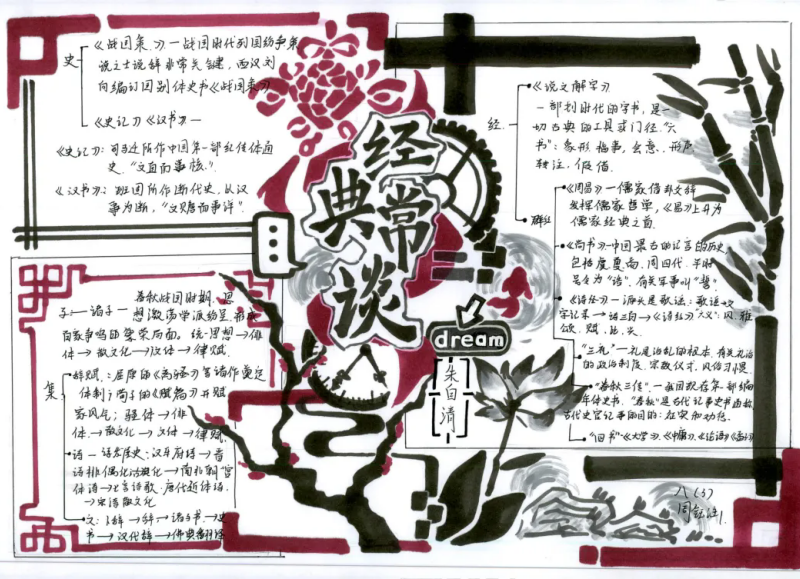 经典常谈
dream
朱自清
史
《战国策》—战国时代列国纷争策
说之士说辞非常关键,西汉刘
向编订国别体史书《战国策》
《史记》《汉书》—
《史记》:司马迁所作中国第一部纪传体通
史,“文直而事核.”
《汉书》:班固所作断代史,以汉
事为断,“文赡而事详”.
子—诸子—
春秋战国时期,思
想激荡学派纷呈,形成
百家争鸣的繁荣局面。统一思想→骈
体→散文化→汉体→律赋.
集
辞赋:屈原的《离骚》言语作奠定
体制;荀子的《赋篇》开赋
家风气;骚体→俳
体→散文化→文体→律赋.
诗—诗发展史:汉乐府诗→音
语排偶化
文:
书→汉代辞→佛典翻译
经.
《说文解字》
一部划时代的字书,是一
切古典的工具或门径.“六
书”:象形.指事,会意,形声
转注,假借.
群经
《周易》—儒家借卦爻辞
发挥儒家哲学,《易》上升为
儒家经典之首
《尚书》—中国最古的记言的历史
包括虞夏商,周四代,平时
号令为“诰”,有关军事叫“誓”
《诗经》—源头是歌谣:歌谣→文
字记录→诗三百→《诗经》“六义”:风,雅
颂,赋,比,兴.
“三礼”—礼是治乱的根本,有关礼治
的政治制度,宗教仪式,风俗习惯
“春秋三传”.—我国现存第一部编
年体史书.
古代史官记事的目的:征实和劝惩.
“四书”《大学》《中庸》《论语》《孟子》
八(3)